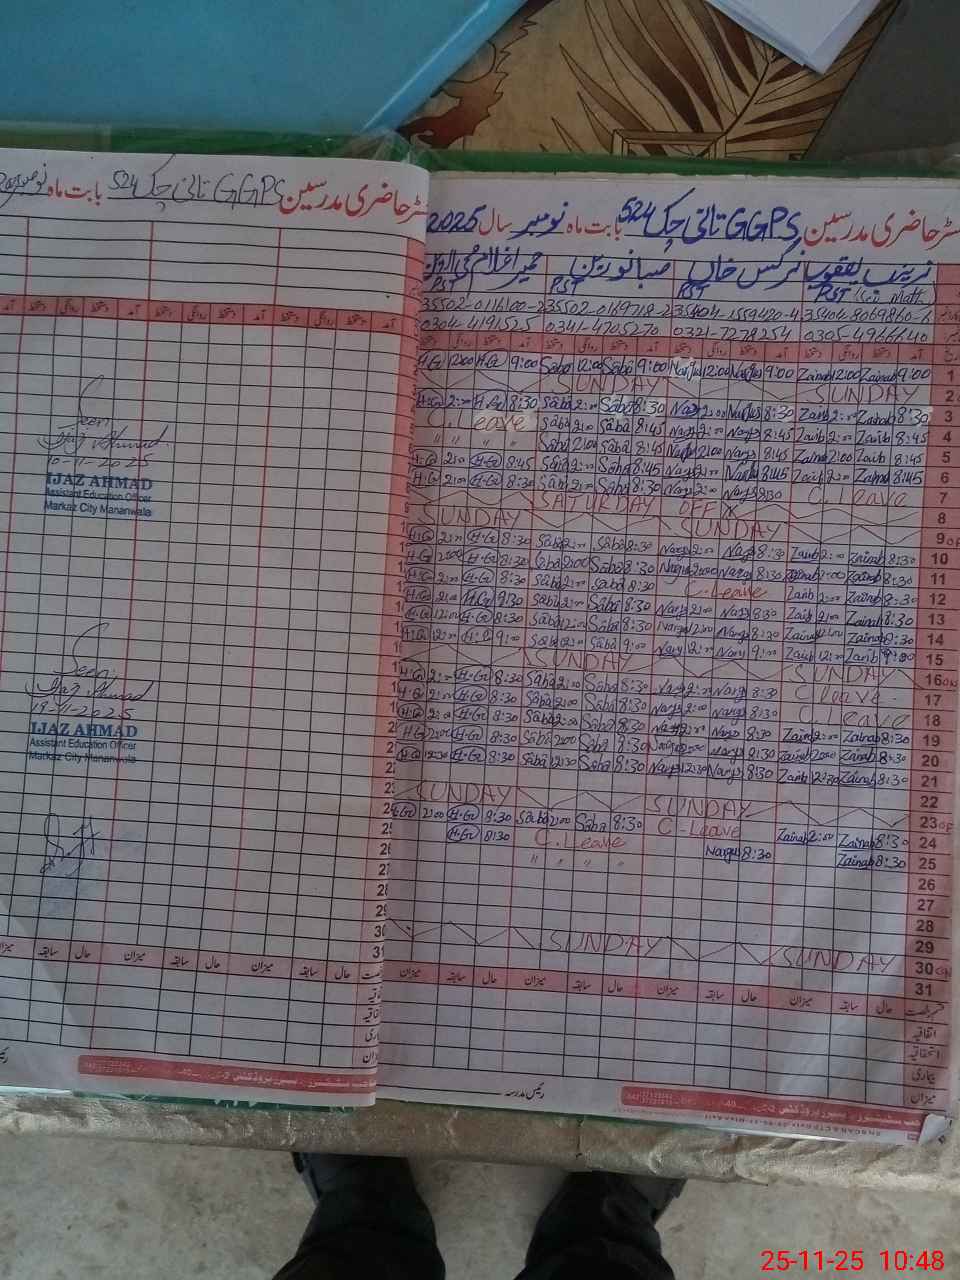 رجسٹر حاضری مدرسین GGPS تاتی چک 524 بابت ماہ نومبر سال 2025
زینب یعقوب نرگس خاں صبا نورین
PST (Sci Math) PST PST PST
35502-0116100-2 35502-0169718-2 35404-1559420-4 35404-8069860-6
0304-4191525 0341-4705270 0321-7278254 0305-4966640
آمد دستخط روانگی دستخط آمد دستخط روانگی دستخط آمد دستخط روانگی دستخط آمد دستخط روانگی دستخط
H.G 12:00 H.G 9:00 Saba 12:00 Saba 9:00 Nargis 12:00 Nargis 9:00 Zainab 12:00 Zainab 9:00 1
SUNDAY SUNDAY 2
H.G 2:00 H.G 8:30 Saba 2:00 Saba 8:30 Nargis 2:00 Nargis 8:30 Zainab 2:00 Zainab 8:30 3
C. Leave Saba 2:00 Saba 8:45 Nargis 2:00 Nargis 8:45 Zainab 2:00 Zainab 8:45 4
" " " Saba 2:00 Saba 8:45 Nargis 2:00 Nargis 8:45 Zainab 2:00 Zainab 8:45 5
H.G 2:00 H.G 8:45 Saba 2:00 Saba 8:45 Nargis 2:00 Nargis 8:45 Zainab 2:00 Zainab 8:45 6
H.G 2:00 H.G 8:30 Saba 2:00 Saba 8:30 Nargis 2:00 Nargis 8:30 C. Leave 7
SATURDAY OFF 8
SUNDAY SUNDAY 9
H.G 2:00 H.G 8:30 Saba 2:00 Saba 8:30 Nargis 2:00 Nargis 8:30 Zainab 2:00 Zainab 8:30 10
H.G 2:00 H.G 8:30 Saba 2:00 Saba 8:30 Nargis 2:00 Nargis 8:30 Zainab 2:00 Zainab 8:30 11
H.G 2:00 H.G 8:30 Saba 2:00 Saba 8:30 C. Leave Zainab 2:00 Zainab 8:30 12
H.G 2:00 H.G 8:30 Saba 2:00 Saba 8:30 Nargis 2:00 Nargis 8:30 Zainab 2:00 Zainab 8:30 13
H.G 12:00 H.G 8:30 Saba 12:00 Saba 8:30 Nargis 12:00 Nargis 8:30 Zainab 12:00 Zainab 8:30 14
H.G 12:00 H.G 9:00 Saba 12:00 Saba 9:00 Nargis 12:00 Nargis 9:00 Zainab 12:00 Zainab 9:00 15
SUNDAY SUNDAY 16
H.G 2:00 H.G 8:30 Saba 2:00 Saba 8:30 Nargis 2:00 Nargis 8:30 C. Leave 17
H.G 2:00 H.G 8:30 Saba 2:00 Saba 8:30 Nargis 2:00 Nargis 8:30 C. Leave 18
H.G 2:00 H.G 8:30 Saba 2:00 Saba 8:30 Nargis 2:00 Nargis 8:30 Zainab 2:00 Zainab 8:30 19
H.G 2:00 H.G 8:30 Saba 2:00 Saba 8:30 Nargis 2:00 Nargis 8:30 Zainab 2:00 Zainab 8:30 20
H.G 12:30 H.G 8:30 Saba 12:30 Saba 8:30 Nargis 12:30 Nargis 8:30 Zainab 12:30 Zainab 8:30 21
22
SUNDAY SUNDAY 23
H.G 2:00 H.G 8:30 Saba 2:00 Saba 8:30 C-Leave Zainab 2:00 Zainab 8:30 24
H.G 8:30 C. Leave Nargis 8:30 Zainab 8:30 25
" " " "
26
27
28
29
SUNDAY SUNDAY 30
31
حال سابقہ میزان حال سابقہ میزان حال سابقہ میزان حال سابقہ میزان
اتفاقیہ
استحقاقیہ
بیماری
میزان
رئیس مدرسہ
حاضری مدرسین GGPS تاتی چک 524 بابت ماہ نومبر
آمد دستخط روانگی دستخط آمد دستخط روانگی دستخط
Seen
Ijaz Ahmad
10-11-2025
IJAZ AHMAD
Assistant Education Officer
Markaz City Mananwala
Seen
Ijaz Ahmad
19-11-2025
IJAZ AHMAD
Assistant Education Officer
Markaz City Mananwala
حال سابقہ میزان حال سابقہ میزان
25-11-25 10:48